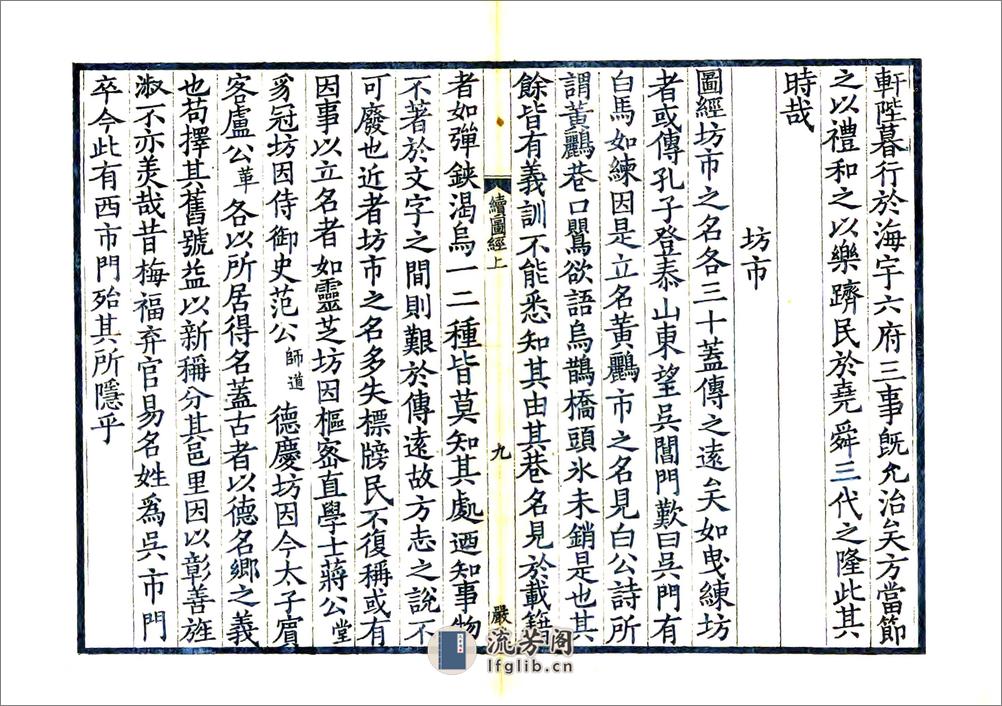 軒陛暮行於海宇六府三事旣允治矣方當節
之以禮和之以樂躋民於堯舜三代之隆此其
時哉
坊市
圖經坊市之名各三十蓋傳之遠矣如曳練坊
者或傳孔子登泰山東望吳閶門歎曰吳門有
白馬如練因是立名黃鸝市之名見白公詩所
謂黃鸝巷口鸎欲語烏鵲橋頭氷未銷是也其
餘皆有義訓不能悉知其由其巷名見於載籍
續圖經上
九
嚴
者如彈鋏渴烏一二種皆莫知其處廼知事物
不著於文字之間則艱於傳遠故方志之說不
可廢也近者坊市之名多失標牓民不復稱或有
因事以立名者如靈芝坊因樞宻直學士蔣公堂
豸冠坊因侍御史范公師道德慶坊因今太子賓
客盧公革各以所居得名蓋古者以德名鄉之義
也苟擇其舊號益以新稱分其邑里因以彰善旌
淑不亦羙哉昔梅福弃官易名姓爲吳市門
卒今此有西市門殆其所隱乎
流芳阁
lfglib.cn